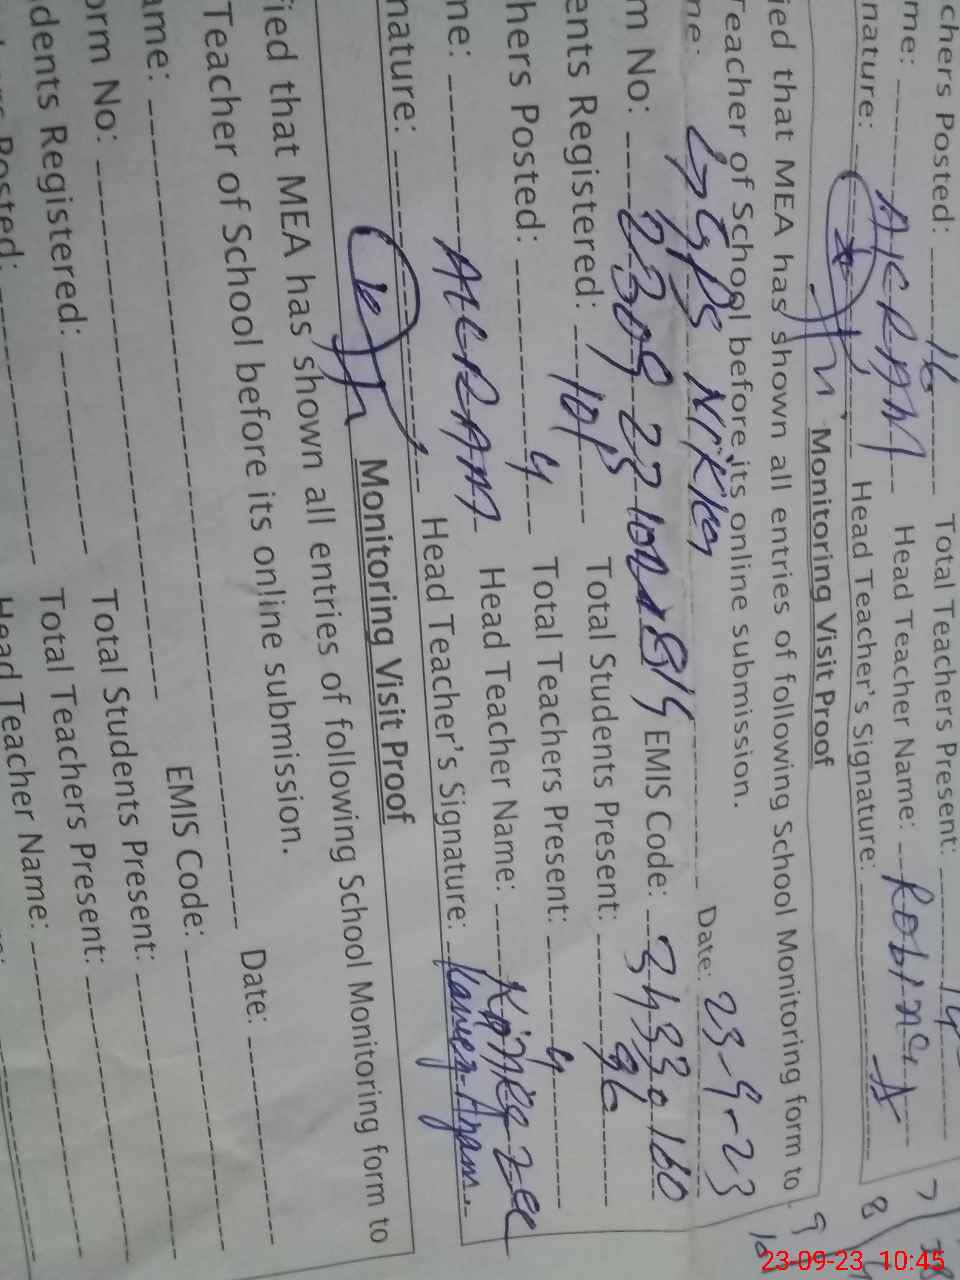 chers Posted: 16 Total Teachers Present: 14
me: AKRAM Head Teacher Name: Robina
nature: Head Teacher's Signature:
7
8
9
Monitoring Visit Proof
ied that MEA has shown all entries of following School Monitoring form to
Teacher of School before its online submission.
ne: GPS Date: 23-9-23
m No: EMIS Code: 34330160
ents Registered: 101 Total Students Present: 96
hers Posted: 4 Total Teachers Present: 4
ne: AKRAM Head Teacher Name:
nature: Head Teacher's Signature:
Monitoring Visit Proof
fied that MEA has shown all entries of following School Monitoring form to
Teacher of School before its online submission.
ame: Date:
orm No: EMIS Code:
dents Registered: Total Students Present:
Posted: Total Teachers Present:
Head Teacher Name:
23-09-23 10:45